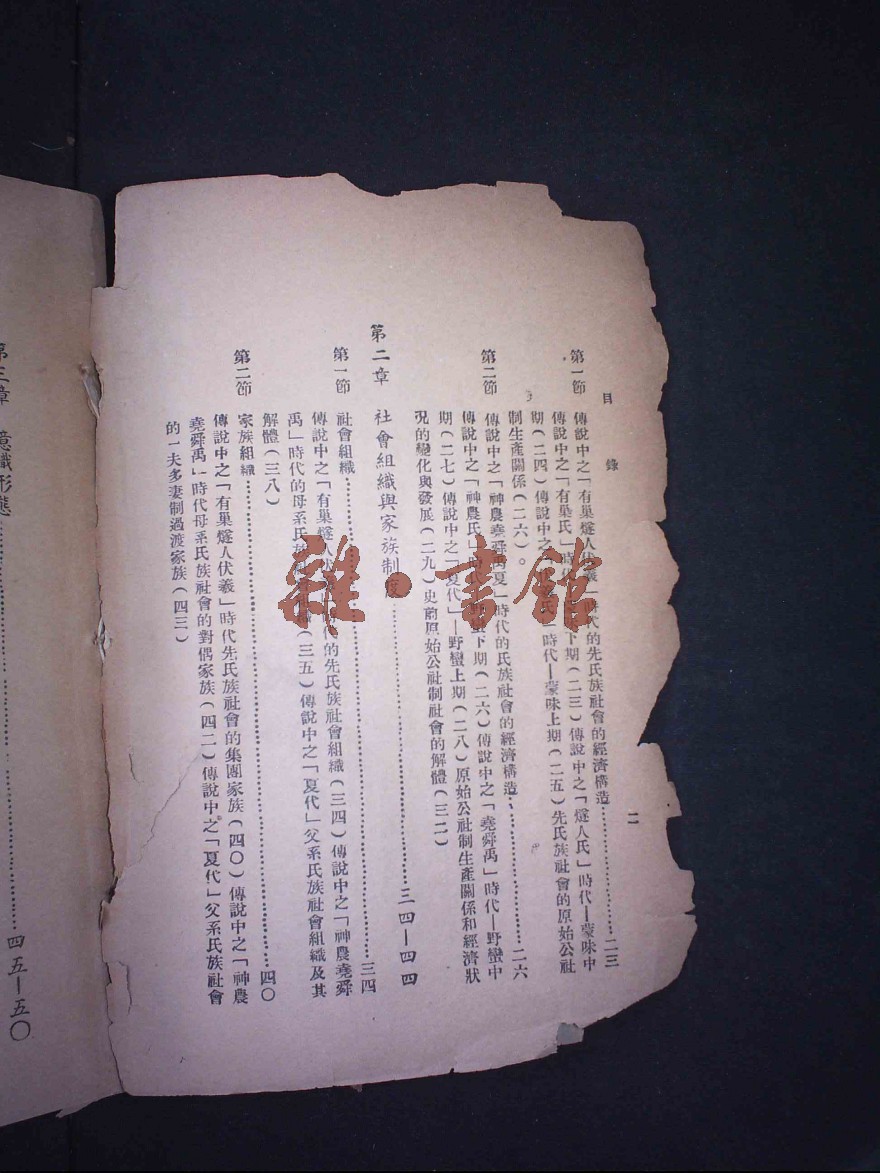 目錄
二
第一節 傳說中之「有巢燧人伏羲」時代的先氏族社會的經濟構造……二三
傳說中之「有巢氏」時代—蒙昧下期(二三)傳說中之「燧人氏」時代—蒙昧中
期(二四)傳說中之 氏」時代—蒙昧上期(二五)先氏族社會的原始公社
制生產關係(二六)。
第二節 傳說中之「神農堯舜禹夏」時代的氏族社會的經濟構造……二六
傳說中之「神農氏」時代—野蠻下期(二六)傳說中之「堯舜禹」時代—野蠻中
期(二七)傳說中之「夏代」—野蠻上期(二八)原始公社制生產關係和經濟狀
況的變化與發展(二九)史前原始公社制社會的解體(三二)
第二章 社會組織與家族制度……三四—四四
第一節 社會組織……三四
傳說中之「有巢燧人伏羲」時代的先氏族社會組織(三四)傳說中之「神農堯舜
禹」時代的母系氏族 (三五)傳說中之「夏代」父系氏族社會組織及其
解體(三八)
第二節 家族組織……四〇
傳說中之「有巢燧人伏羲」時代先氏族社會的集團家族(四〇)傳說中之「神農
堯舜禹」時代母系氏族社會的對偶家族(四二)傳說中之「夏代」父系氏族社會
的一夫多妻制過渡家族(四三)
第三章 意識形態……四五—五〇
雜·書館